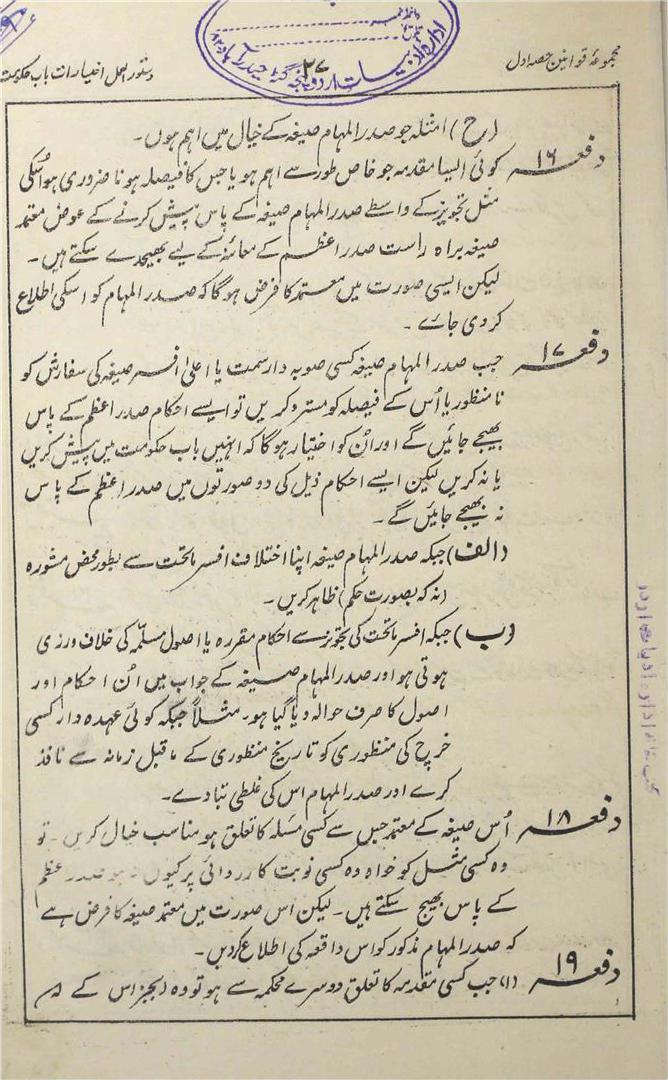 مجموعۂ قوانین حصہ اول
۲۷
دستور العمل اختیارات باب حکومت
ادارہ ادبیات اردو پنجہ گٹہ حیدرآباد
(ح) امثلہ جو صدر المہام صیغہ کے خیال میں اہم ہوں۔
دفعہ ۱۶ کوئی ایسا مقدمہ جو خاص طور سے اہم ہو یا جس کا فیصلہ ہونا ضروری ہو اُسکی
مثل تجویز کے واسطے صدر المہام صیغہ کے پاس پیش کرنے کے عوض معتمد
صیغہ براہ راست صدر اعظم کے معائنہ کے لیے بھیجدے سکتے ہیں۔
لیکن ایسی صورت میں معتمد کا فرض ہوگا کہ صدر المہام کو اسکی اطلاع
کر دی جائے۔
دفعہ ۱۷ جب صدر المہام صیغہ کسی صوبہ دار سمت یا اعلیٰ افسر صیغہ کی سفارش کو
نا منظور یا اُس کے فیصلہ کو مسترد کریں تو ایسے احکام صدر اعظم کے پاس
بھیجے جائیں گے اور ان کو اختیار ہوگا کہ انہیں باب حکومت میں پیش کریں
یا نہ کریں لیکن ایسے احکام ذیل کی دو صورتوں میں صدر اعظم کے پاس
نہ بھیجے جائیں گے۔
(الف) جبکہ صدر المہام صیغہ اپنا اختلاف افسر ماتحت سے بطور محض مشورہ
(نہ کہ بصورت حکم) ظاہر کریں۔
(ب) جبکہ افسر ماتحت کی تجویز سے احکام مقررہ یا اصول مسلّمہ کی خلاف ورزی
ہوتی ہو اور صدر المہام صیغہ کے جواب میں اُن احکام اور
اصول کا صرف حوالہ دیا گیا ہو۔ مثلاً جبکہ کوئی عہدہ دار کسی
خرچ کی منظوری کو تاریخ منظوری کے ماقبل زمانہ سے نافذ
کرے اور صدر المہام اس کی غلطی بتا دے۔
دفعہ ۱۸ اُس صیغہ کے معتمد جس سے کسی مسئلہ کا تعلق ہو مناسب خیال کریں۔ تو
وہ کسی مثل کو خواہ وہ کسی نوبت کارروائی پر کیوں نہ ہو صدر اعظم
کے پاس بھیج سکتے ہیں۔ لیکن اس صورت میں معتمد صیغہ کا فرض ہے
کہ صدر المہام مذکور کو اس واقعہ کی اطلاع کردیں۔
دفعہ ۱۹ (۱) جب کسی مقدمہ کا تعلق دوسرے محکمہ سے ہو تو وہ بجز اس کے کہ